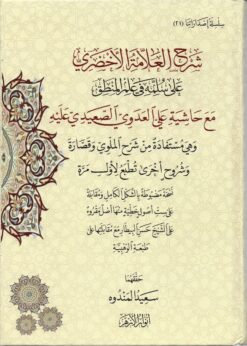 سلسلة إصداراتنا (٢٦)
شرح العلامة الأخضري
على سلمه في علم المنطق
مع حاشية علي العدوي الصعيدي عليه
وهي مستفادة من شرح الملوي وقصارة
وشروح أخرى تطبع لأول مرة
نسخة مضبوطة بالشكل الكامل ومقابلة
على ست أصول خطية منها أصل مقروء
على الشيخ حسن البيطار مع مقابلتها على
طبعة الوهبية
حققهما
سعيد المندوه